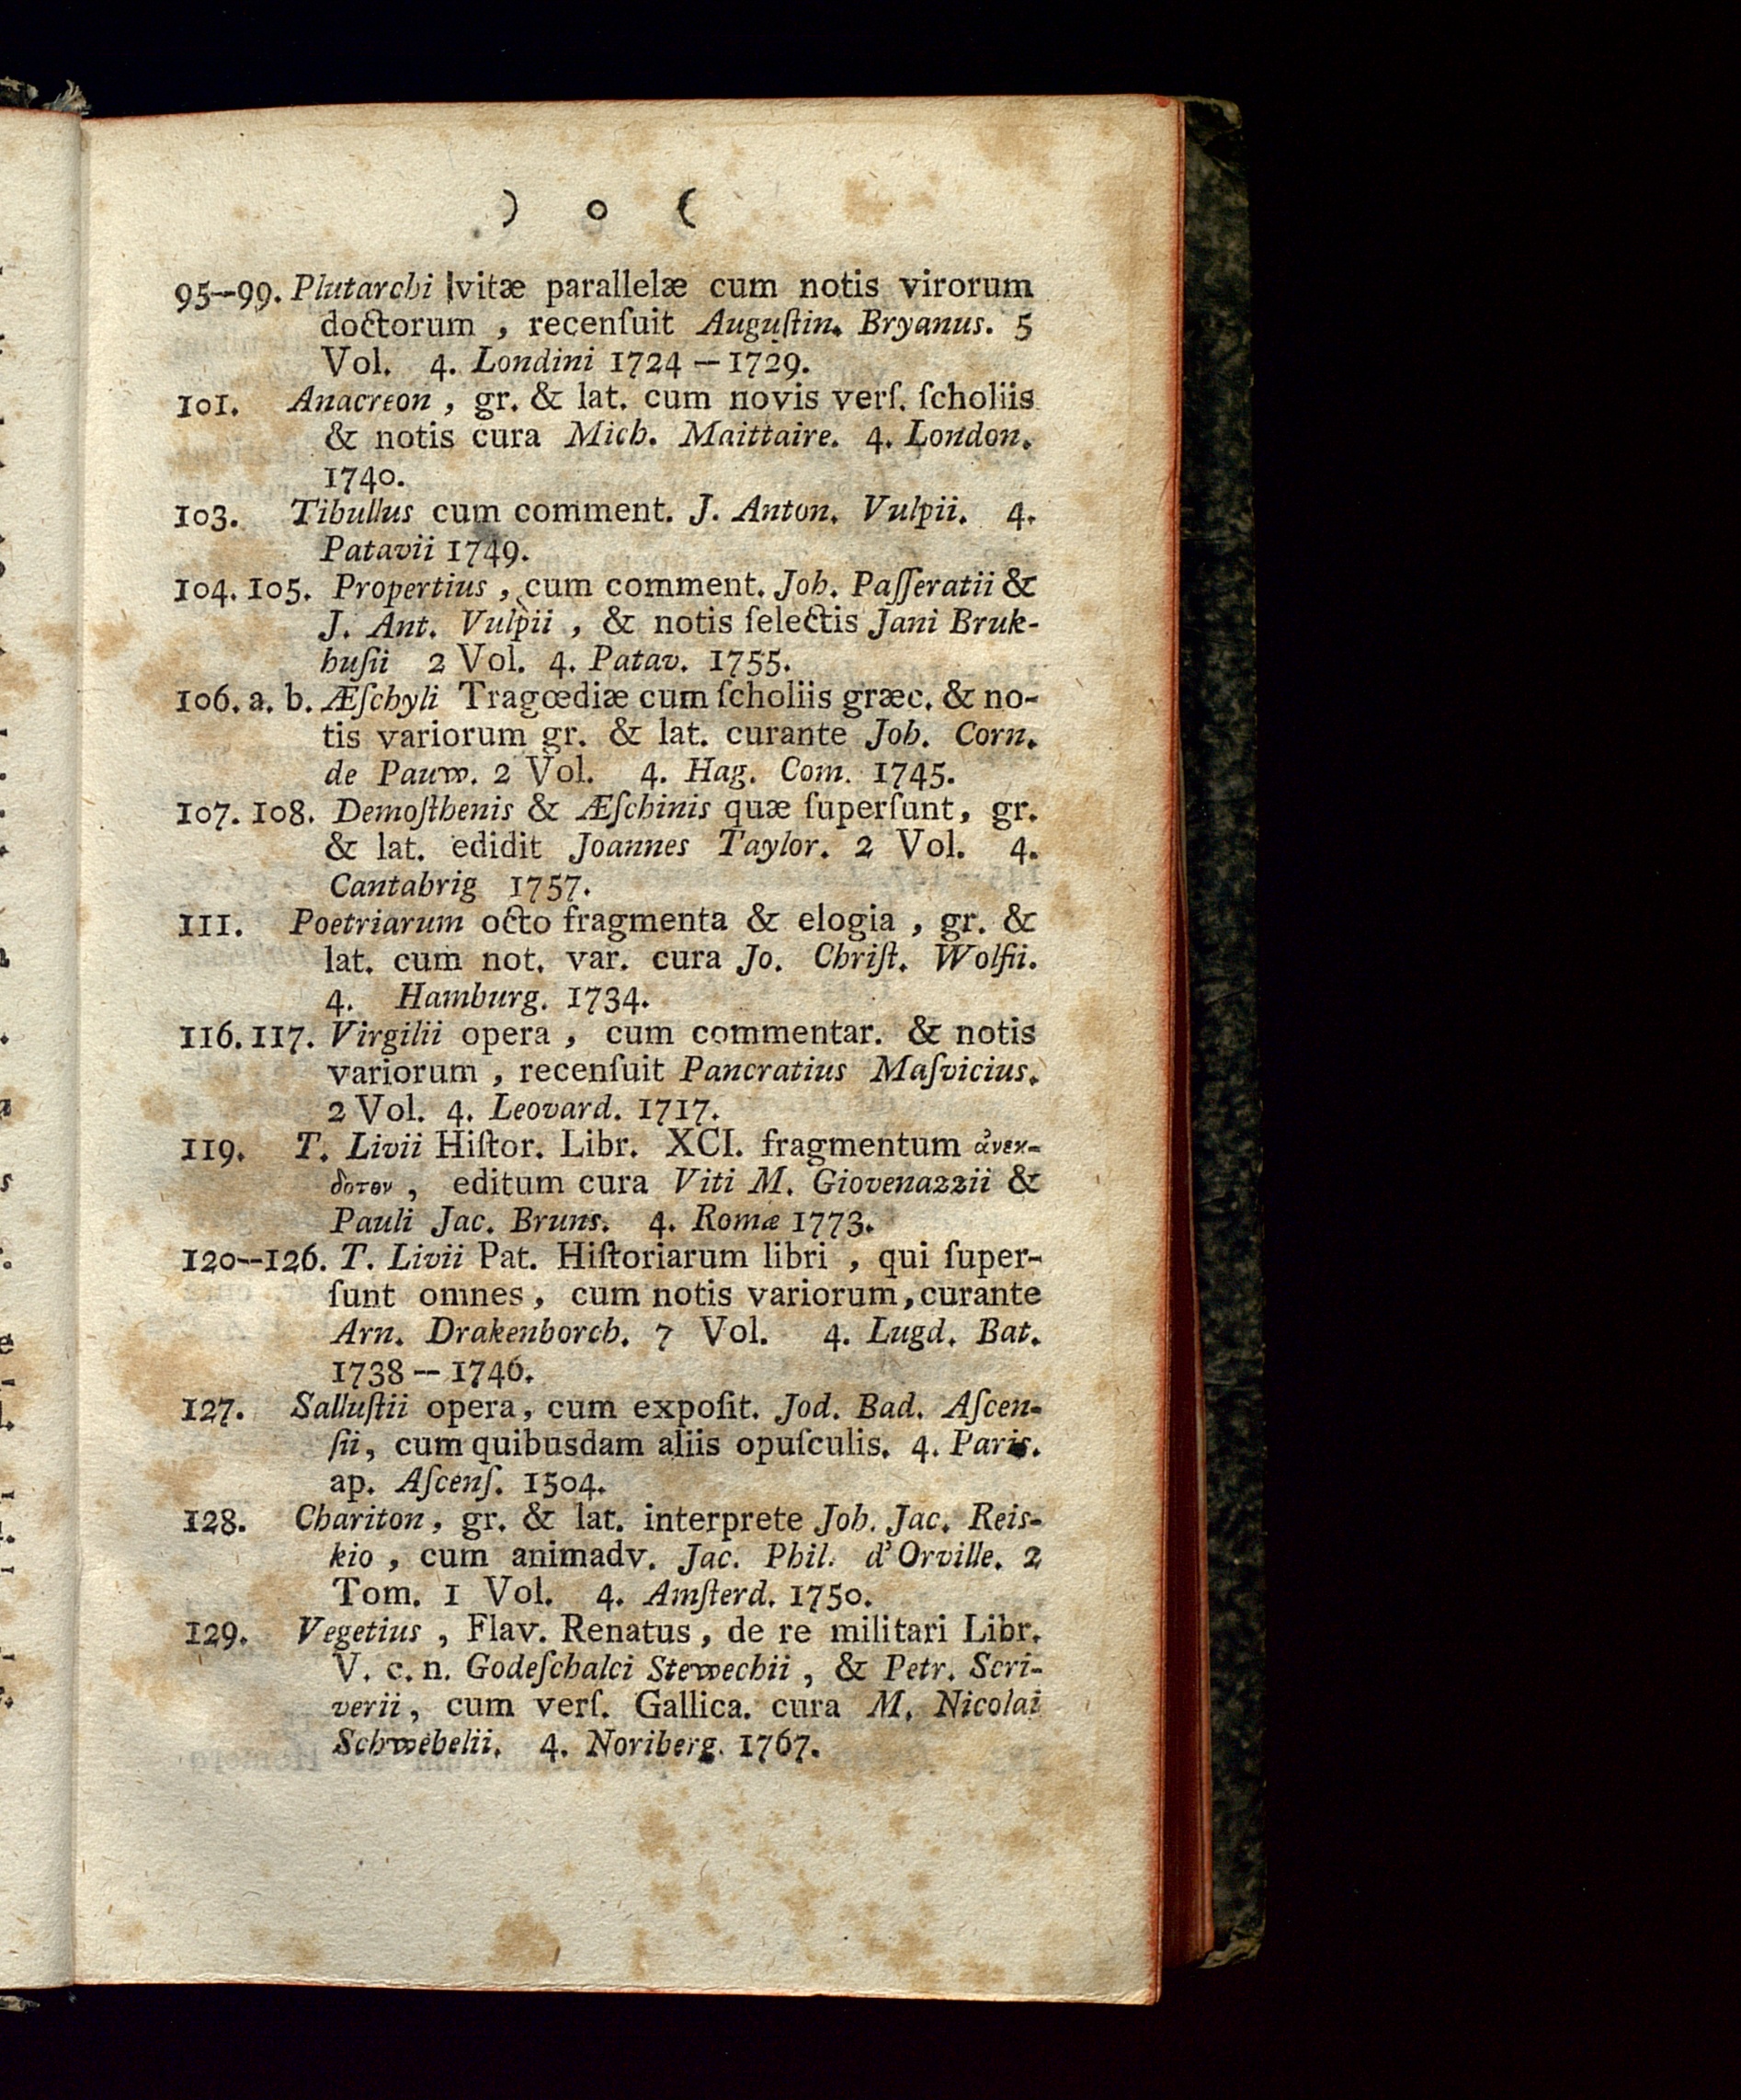 ) o (
95—99. Plutarchi vitæ parallelæ cum notis virorum
doctorum , recenſuit Auguſtin. Bryanus. 5
Vol. 4. Londini 1724 — 1729.
101. Anacreon , gr. & lat. cum novis verſ. ſcholiis
& notis cura Mich. Maittaire. 4. London.
1740.
103. Tibullus cum comment. J. Anton. Vulpii. 4.
Patavii 1749.
104. 105. Propertius , cum comment. Joh. Paſſeratii &
J. Ant. Vulpii , & notis ſelectis Jani Bruk-
huſii 2 Vol. 4. Patav. 1755.
106. a. b. Æſchyli Tragœdiæ cum ſcholiis græc. & no-
tis variorum gr. & lat. curante Joh. Corn.
de Pauw. 2 Vol. 4. Hag. Com. 1745.
107. 108. Demoſthenis & Æſchinis quæ ſuperſunt, gr.
& lat. edidit Joannes Taylor. 2 Vol. 4.
Cantabrig 1757.
111. Poetriarum octo fragmenta & elogia , gr. &
lat. cum not. var. cura Jo. Chriſt. Wolfii.
4. Hamburg. 1734.
116. 117. Virgilii opera , cum commentar. & notis
variorum , recenſuit Pancratius Maſvicius.
2 Vol. 4. Leovard. 1717.
119. T. Livii Hiſtor. Libr. XCI. fragmentum ἀνεκ-
δοτον , editum cura Viti M. Giovenazzii &
Pauli Jac. Bruns. 4. Romæ 1773.
120—126. T. Livii Pat. Hiſtoriarum libri , qui ſuper-
ſunt omnes, cum notis variorum, curante
Arn. Drakenborch. 7 Vol. 4. Lugd. Bat.
1738 — 1746.
127. Salluſtii opera, cum expoſit. Jod. Bad. Aſcen-
ſii, cum quibusdam aliis opuſculis. 4. Paris.
ap. Aſcenſ. 1504.
128. Chariton, gr. & lat. interprete Joh. Jac. Reis-
kio , cum animadv. Jac. Phil. d'Orville. 2
Tom. 1 Vol. 4. Amſterd. 1750.
129. Vegetius , Flav. Renatus , de re militari Libr.
V. c. n. Godeſchalci Stewechii , & Petr. Scri-
verii, cum verſ. Gallica. cura M. Nicolai
Schwebelii. 4. Noriberg. 1767.